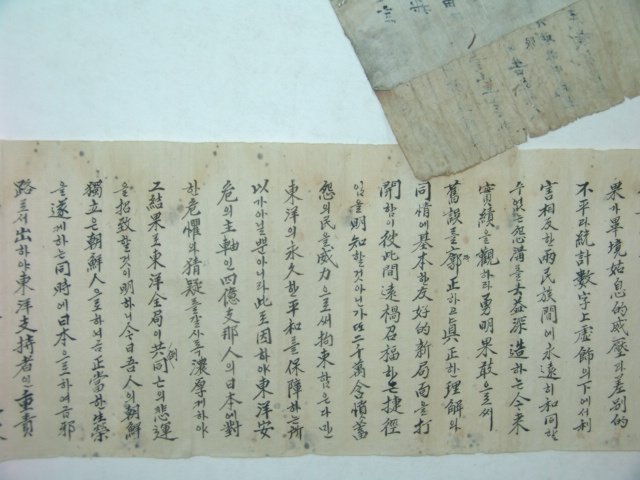 果가畢境姑息的威壓과差別的
不平과統計數字上虛飾의下에서利
害相反한兩民族間에永遠히和同할
수없는怨溝를去益深造하는今來
實績을觀하라勇明果敢으로써
舊誤를廓正하고眞正한理解와
同情에基本한友好的新局面을打
開함이彼此間遠禍召福하는捷徑
임을明知할것아닌가또二千萬含憤蓄
怨의民을威力으로써拘束함은다만
東洋의永久한平和를保障하는所
以가아닐뿐아니라此로因하야東洋安
危의主軸인四億支那人의日本에對
한危懼와猜疑를갈사록濃厚케하야
그結果로東洋全局이共倒同亡의悲運
을招致할것이明하니今日吾人의朝鮮
獨立은朝鮮人으로하여금正當한生榮
을遂케하는同時에日本으로하여금邪
路로서出하야東洋支持者인重責